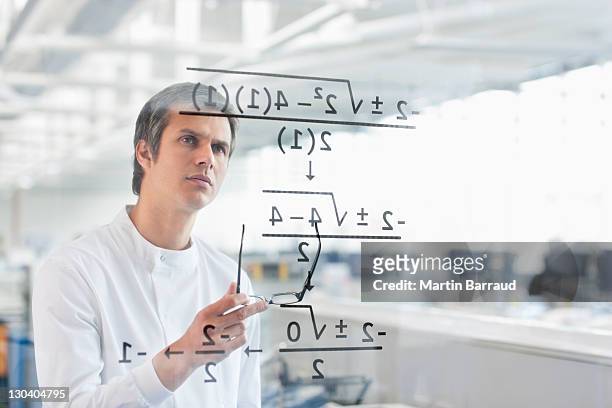 -2 ± √2² - 4(1)(1)
2(1)
↓
-2 ± √4 - 4
2
↓
-2 ± √0
2
→ -2
2
→ -1
gettyimages
Credit: Martin Barraud
130404795